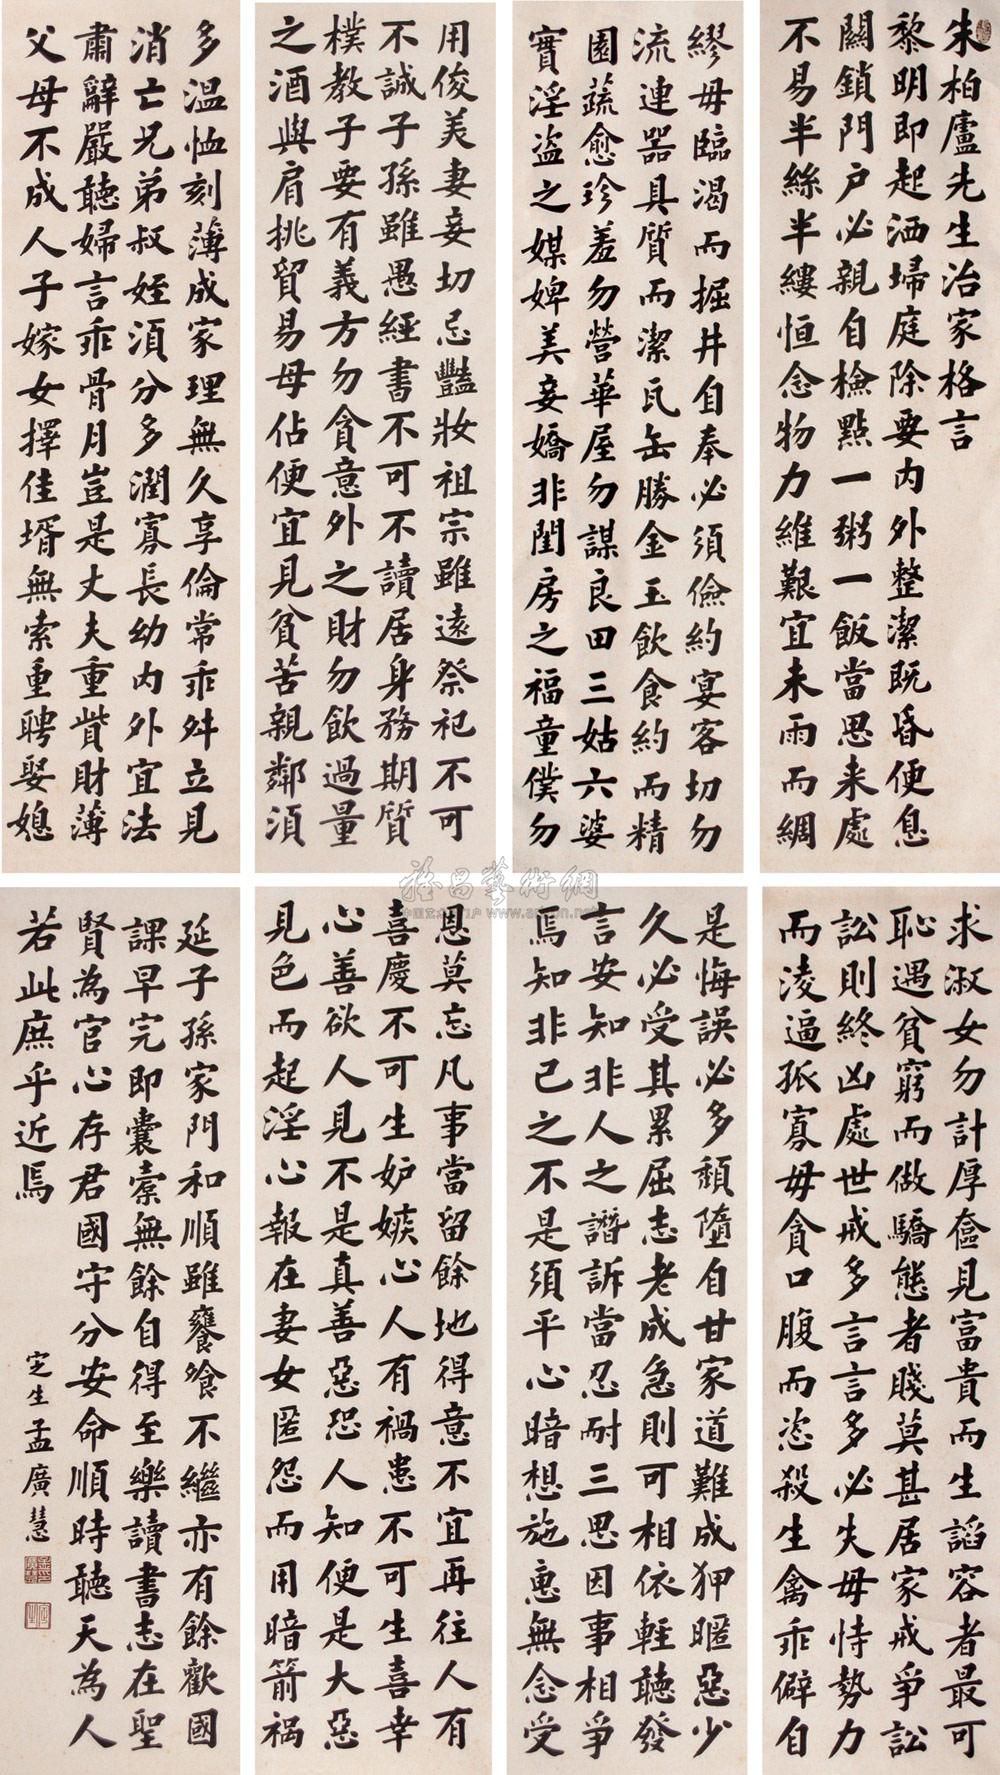 朱柏廬先生治家格言
黎明即起洒埽庭除要内外整潔既昏便息
關鎖門户必親自檢點一粥一飯當思来處
不易半絲半縷恒念物力維艱宜未雨而綢
繆毋臨渴而掘井自奉必須儉約宴客切勿
流連器具質而潔瓦缶勝金玉飲食約而精
園蔬愈珍羞勿營華屋勿謀良田三姑六婆
實淫盗之媒婢美妾嬌非閨房之福童僕勿
用俊美妻妾切忌豔妝祖宗雖遠祭祀不可
不誠子孫雖愚經書不可不讀居身務期質
樸教子要有義方勿貪意外之財勿飲過量
之酒與肩挑貿易毋佔便宜見貧苦親鄰須
多温恤刻薄成家理無久享倫常乖舛立見
消亡兄弟叔姪須分多潤寡長幼内外宜法
肅辭嚴聽婦言乖骨月豈是丈夫重貲財薄
父母不成人子嫁女擇佳壻無索重聘娶媳
求淑女勿計厚奩見富貴而生諂容者最可
恥遇貧窮而做驕態者賤莫甚居家戒爭訟
訟則終凶處世戒多言言多必失毋恃勢力
而淩逼孤寡毋貪口腹而恣殺生禽乖僻自
是悔誤必多頹墮自甘家道難成狎暱惡少
久必受其累屈志老成急則可相依輕聽發
言安知非人之譖訴當忍耐三思因事相爭
焉知非己之不是須平心暗想施惠無念受
恩莫忘凡事當留餘地得意不宜再往人有
喜慶不可生妒嫉心人有禍患不可生喜幸
心善欲人見不是真善惡恐人知便是大惡
見色而起淫心報在妻女匿怨而用暗箭禍
延子孫家門和順雖饔飧不繼亦有餘歡國
課早完即囊橐無餘自得至樂讀書志在聖
賢為官心存君國守分安命順時聽天為人
若此庶乎近焉
定生孟廣慧